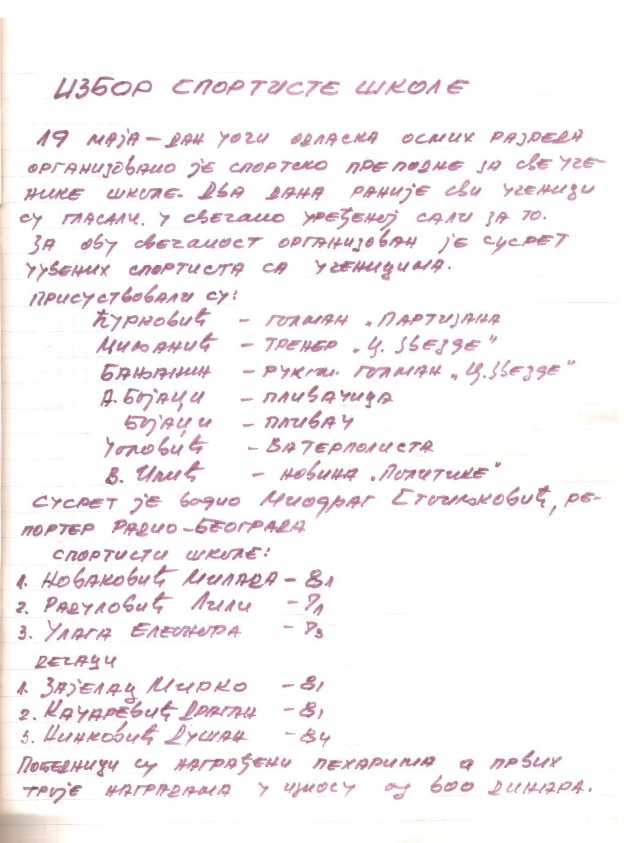 ИЗБОР СПОРТИСТЕ ШКОЛЕ
19 МАЈА – ДАН УОЧИ ОДЛАСКА ОСМИХ РАЗРЕДА
ОРГАНИЗОВАНО ЈЕ СПОРТСКО ПРЕПОДНЕ ЗА СВЕ УЧЕ-
НИКЕ ШКОЛЕ. ДВА ДАНА РАНИЈЕ СВИ УЧЕНИЦИ
СУ ГЛАСАЛИ. У СВЕЧАНО УРЕЂЕНОЈ САЛИ ЗА ТО.
ЗА ОВУ СВЕЧАНОСТ ОРГАНИЗОВАН ЈЕ СУСРЕТ
ЧУВЕНИХ СПОРТИСТА СА УЧЕНИЦИМА.
ПРИСУСТВОВАЛИ СУ:
ЋУРКОВИЋ – ГОЛМАН „ПАРТИЗАНА
МИЉАНИЋ – ТРЕНЕР „Ц. ЗВЕЗДЕ"
БАЊАНИН – РУКОМ. ГОЛМАН „Ц. ЗВЕЗДЕ"
А. БОЈАЏИ – ПЛИВАЧИЦА
БОЈАЏИ – ПЛИВАЧ
– ВАТЕРПОЛИСТА
В. ИЛИЋ – НОВИНА „ПОЛИТИКЕ"
СУСРЕТ ЈЕ ВОДИО МИОДРАГ СТОИЉКОВИЋ, РЕ-
ПОРТЕР РАДИО-БЕОГРАДА
СПОРТИСТИ ШКОЛЕ:
1. НОВАКОВИЋ МИЛАДА – 8₁
2. РАДУЛОВИЋ ЛИЛИ – 7₁
3. УЛАГА ЕЛЕОНОРА – 7₃
ДЕЧАЦИ
1. ЗАЈЕЛАЦ МИРКО – 8₁
2. КАЧАРЕВИЋ ДРАГАН – 8₁
3. НИНКОВИЋ ДУШАН – 8₄
ПОБЕДНИЦИ СУ НАГРАЂЕНИ ПЕХАРИМА А ПРВИХ
ТРОЈЕ НАГРАДАМА У ИЗНОСУ ОД 600 ДИНАРА.